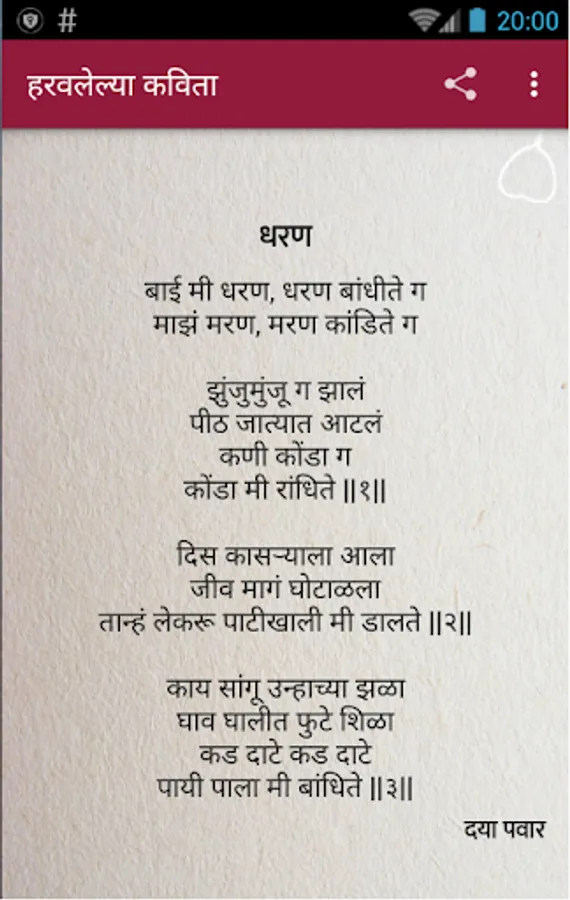 # 20:00
हरवलेल्या कविता
धरण
बाई मी धरण, धरण बांधीते ग
माझं मरण, मरण कांडिते ग
झुंजुमुंजू ग झालं
पीठ जात्यात आटलं
कणी कोंडा ग
कोंडा मी रांधिते ||१||
दिस कासऱ्याला आला
जीव मागं घोटाळला
तान्हं लेकरू पाटीखाली मी डालते ||२||
काय सांगू उन्हाच्या झळा
घाव घालीत फुटे शिळा
कड दाटे कड दाटे
पायी पाला मी बांधिते ||३||
दया पवार